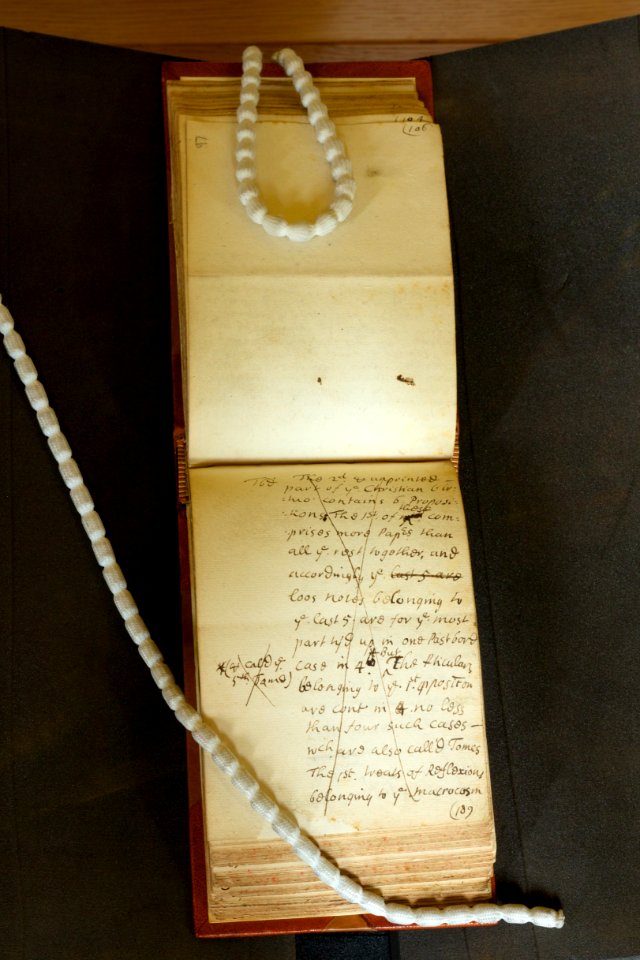 106
The 2d & unprinted
part of ye Christian Vir-
tuo contains 6 Proposi-
tions The 1st of these com-
prises more Papers than
all ye rest together, and
accordingly ye last 5 are
loos notes belonging to
ye last 5 are for ye most
part ty'd up in one Pastbord
case in 4o but The
belonging to ye 1st
are cont in 4 no less
than four such cases —
wch are also call'd Tomes
The 1st. treats of Reflexions
belonging to ye macrocosm
(4 call'd ye
5th Tome)
(189